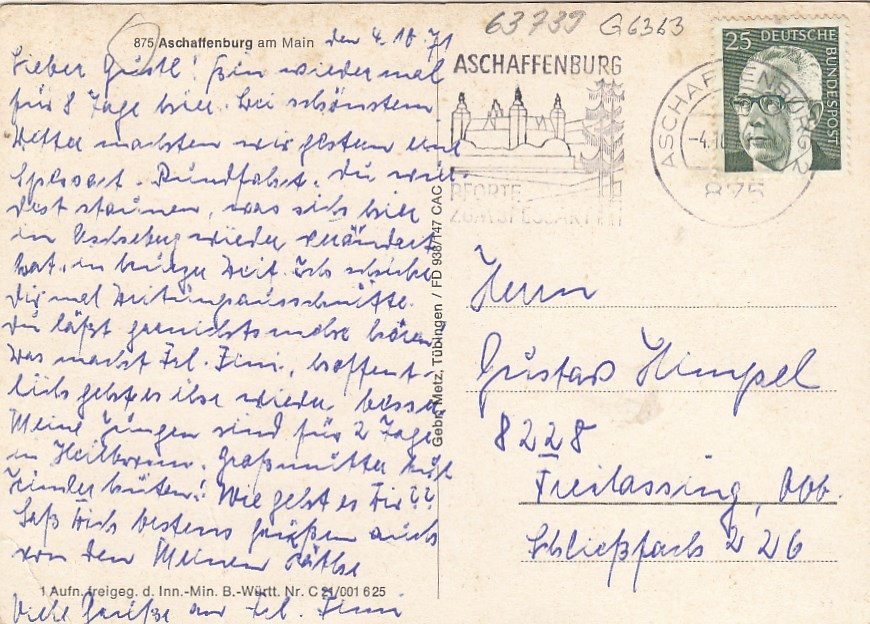 63739 G6363
875 Aschaffenburg am Main
den 4.10.71
Lieber Gustl! Bin wieder mal
für 8 Tage hier. Bei schönstem
Wetter machten wir gestern eine
Spessart-Rundfahrt. Du wür-
dest staunen, was sich hier
in Aschebg wieder verändert
hat, in kurzer Zeit. Ich schicke
Dir mal Zeitungsausschnitte.
Du läßt garnichts mehr hören.
Was macht Frl. Fini, hoffent-
lich geht es ihr wieder besser.
Meine Jungen sind für 2 Tage
in Heilbronn. Großmutter muß
Kinder hüten! Wie geht es Dir??
Laß Dich bestens grüßen auch
von den Meinen Käthe
1 Aufn. freigeg. d. Inn.-Min. B.-Württ. Nr. C 21/001 625
Viele Grüße an Frl. Fini
Gebr. Metz, Tübingen / FD 938/147 CAC
ASCHAFFENBURG
PFORTE
ZUM SPESSART
ASCHAFFENBURG 2
-4.10
875
25 DEUTSCHE BUNDESPOST
Herrn
Gustav Himpel
8228
Freilassing, Obb.
Schließfach 226